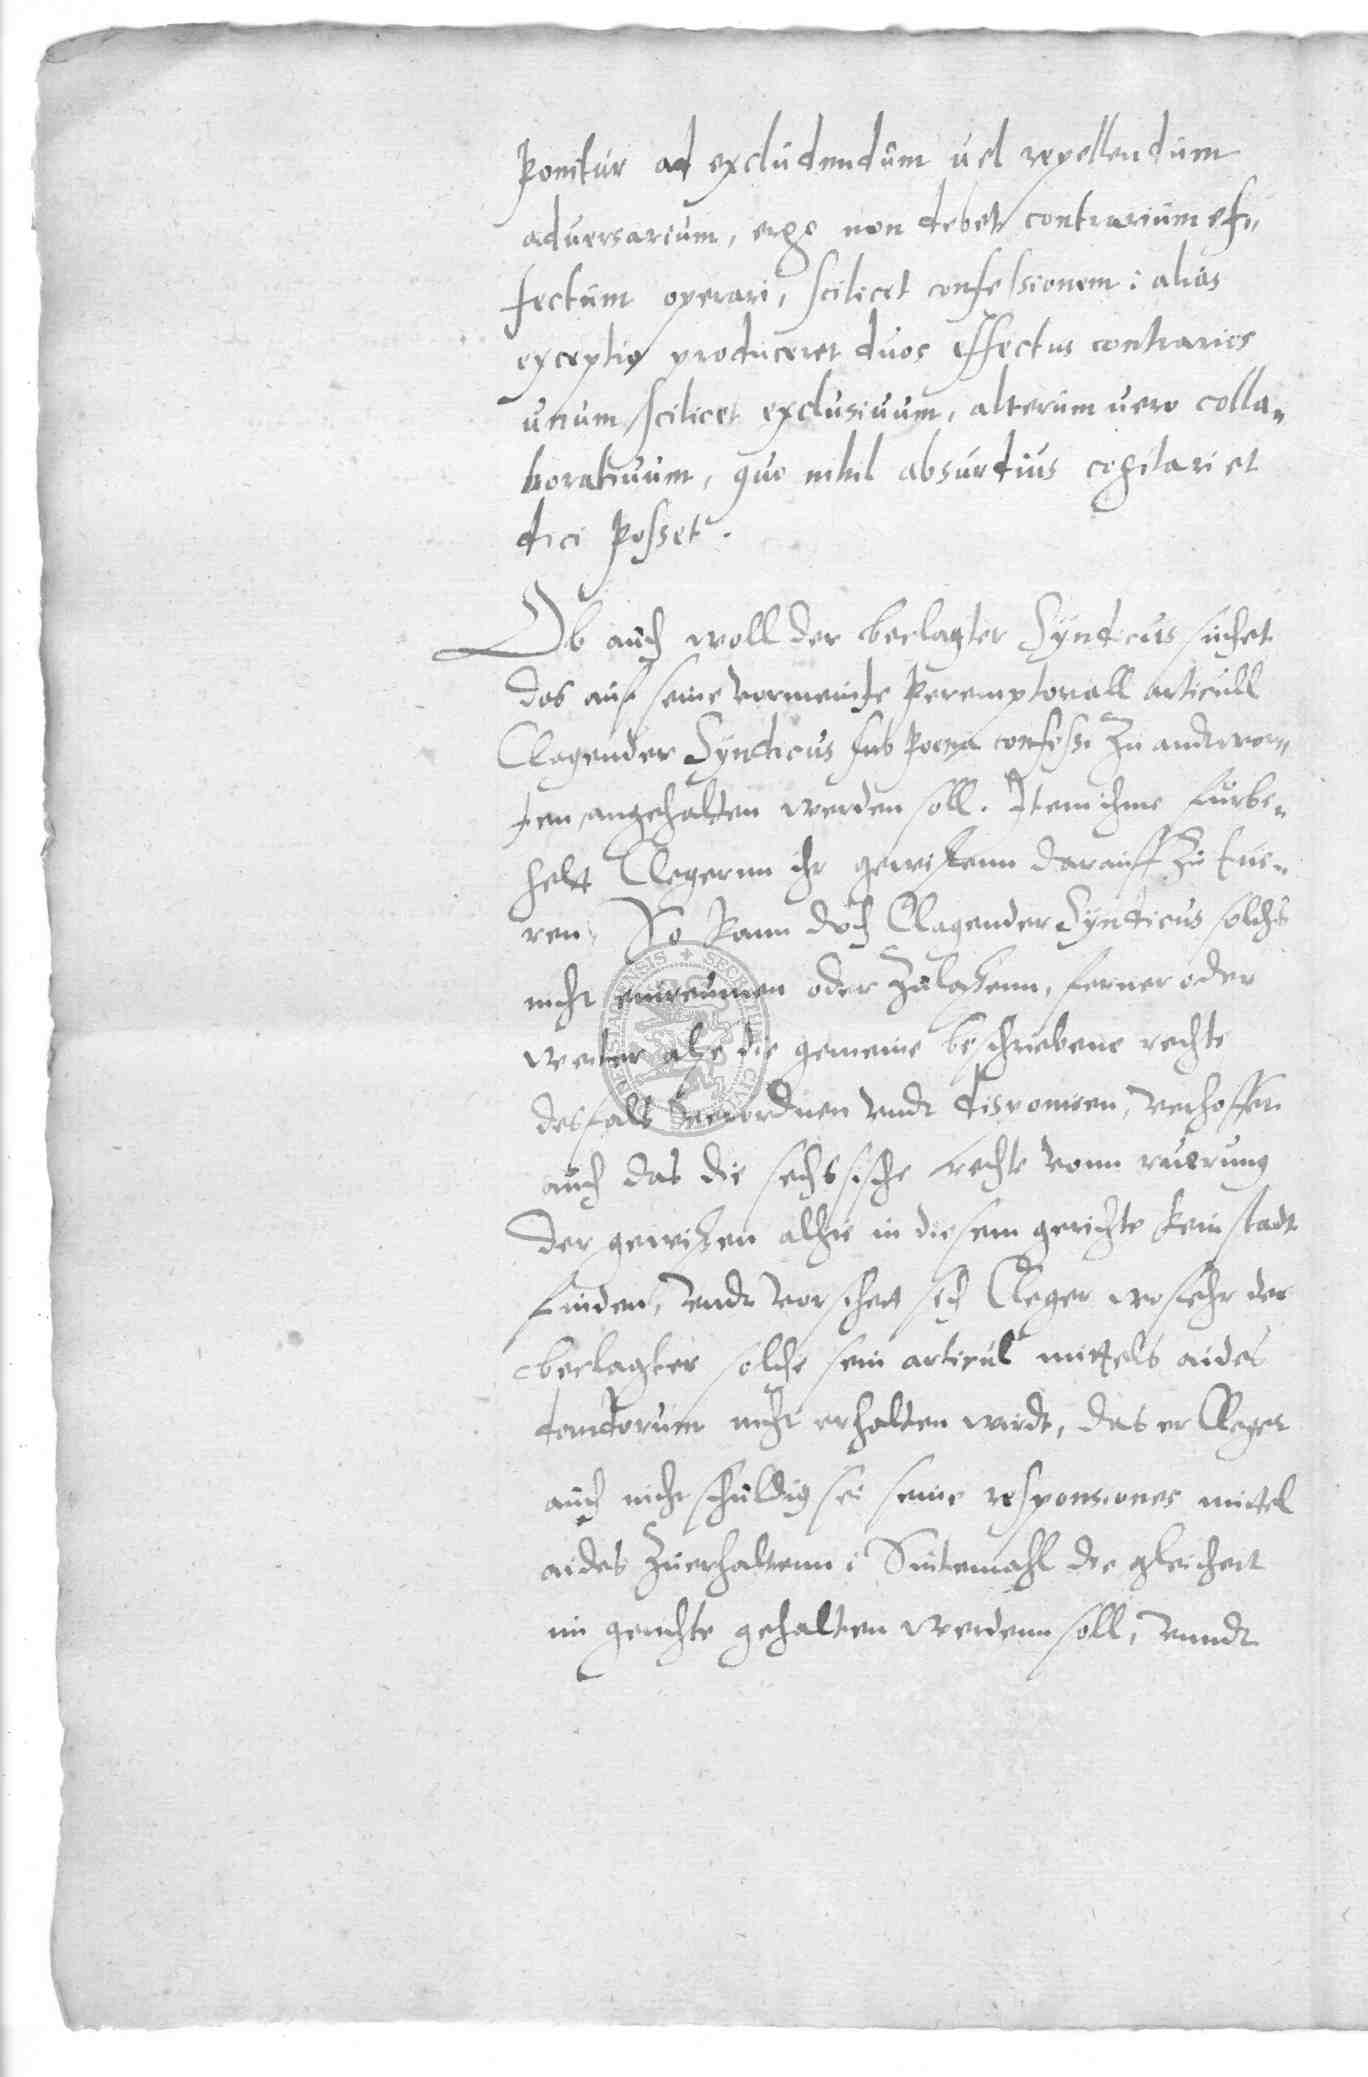 ponitur ad excludendum vel repellendum
aduersarium, ergo non debet contrarium ef-
fectum operari, scilicet confessionem: alias
exceptio produceret duos effectus contrarios
unum scilicet exclusiuum, alterum uero colla-
boratiuum, quo nihil absurdius cogitari et
dici posset.
Ob auch woll der beclagter Syndicus suchet
das auf seine vormeinte Peremptoriall articull
Clagender Syndicus sub poena confessi zu andtwor-
ten angehalten werden soll. Item ihme fürbe-
helt Clegernn ihr gewissenn darauff zu rue-
ren, So kann doch Clagender Syndicus solchs
nicht einreumen oder zulassenn, ferner oder
weiter alse die gemeine beschriebene rechte
desfals verordnen vndt disponiren, verhoffen
auch das die sechssische rechte vonn ruerung
der gewissen alhie in diesem gerichte kein stadt
finden, vndt vorsihet sich Cleger wofehr der
beclagter solche sein articul mittels aides
dandorum nicht erhalten wirdt, das er Cleger
auch nicht schuldig sei seine responsiones mittel
aides zuerhaltenn: Sintemahl die gleicheit
im gerichte gehalten werdenn soll, vnndt